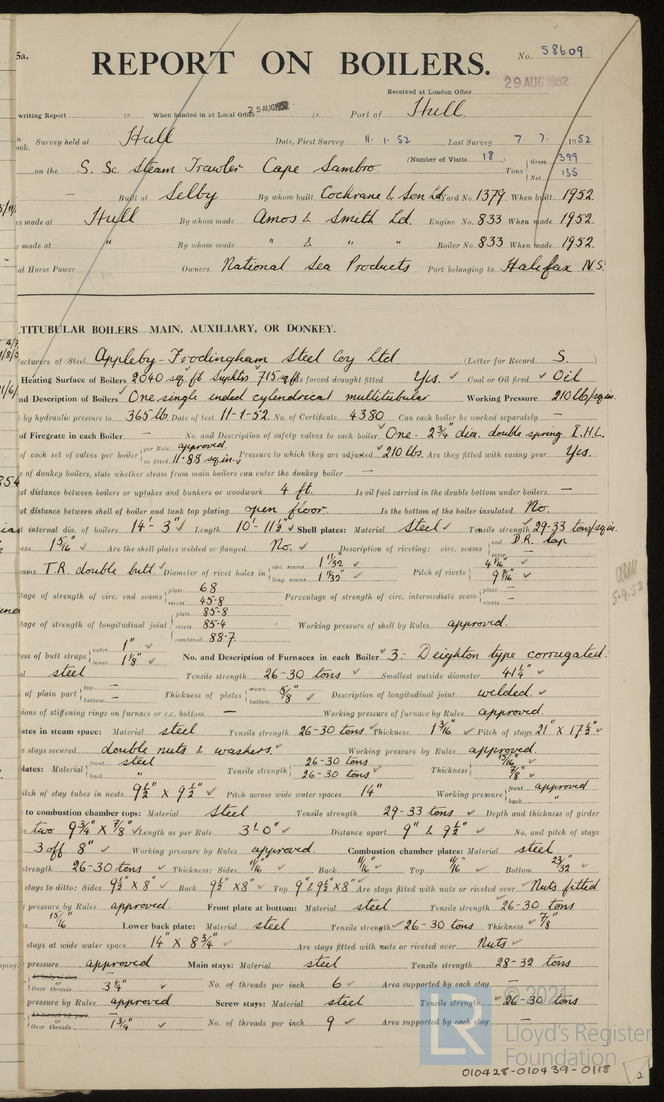 5a.
REPORT ON BOILERS.
No. 58609
29 AUG 1952
Received at London Office
writing Report 19 When handed in at Local Office 25 AUG 1952 19 Port of Hull.
Survey held at Hull Date, First Survey 11. 1. 52 Last Survey 7. 7. 1952
ook.
(Number of Visits 18) Gross 399
on the S. Sc. Steam Trawler Cape Sambro. Tons Net 135
Built at Selby By whom built Cochrane & Son Ld. Yard No. 1379 When built 1952.
es made at Hull By whom made Amos & Smith Ld. Engine No. 833 When made 1952.
s made at " By whom made " & " " Boiler No. 833 When made 1952.
al Horse Power Owners National Sea Products Port belonging to Halifax N.S.
TITUBULAR BOILERS MAIN, AUXILIARY, OR DONKEY.
acturers of Steel Appleby-Frodingham Steel Coy Ltd (Letter for Record S.)
Heating Surface of Boilers 2040 sq. ft Suphtr 715 sq ft Is forced draught fitted Yes. Coal or Oil fired Oil
nd Description of Boilers One single ended cylindrical multitubular Working Pressure 210 lb/sq.in.
by hydraulic pressure to 365 lb. Date of test 11-1-52. No. of Certificate 4380 Can each boiler be worked separately —
of Firegrate in each Boiler No. and Description of safety valves to each boiler One - 2¾" dia. double spring I.H.L.
of each set of valves per boiler per Rule approved as fitted 11.88 sq.in. Pressure to which they are adjusted 210 lbs. Are they fitted with easing gear Yes.
of donkey boilers, state whether steam from main boilers can enter the donkey boiler —
st distance between boilers or uptakes and bunkers or woodwork 4 ft. Is oil fuel carried in the double bottom under boilers —
st distance between shell of boiler and tank top plating open floor. Is the bottom of the boiler insulated No.
internal dia. of boilers 14'- 3" Length 10'- 11½" Shell plates: Material Steel Tensile strength 29-33 tons/sq.in.
ess 1 5/16" Are the shell plates welded or flanged No. Description of riveting: circ. seams end D.R. lap inter. —
ams T.R. double butt Diameter of rivet holes in circ. seams 1 11/32" long. seams 1 11/32" Pitch of rivets 4 1/16" 9 9/16"
tage of strength of circ. end seams plate 68 rivets 45.8 Percentage of strength of circ. intermediate seam plate — rivets —
tage of strength of longitudinal joint plate 85.8 rivets 85.4 combined 88.7 Working pressure of shell by Rules approved.
ss of butt straps outer 1" inner 1⅛" No. and Description of Furnaces in each Boiler 3: Deighton type corrugated.
steel Tensile strength 26-30 tons Smallest outside diameter 41¼"
of plain part top — bottom — Thickness of plates crown 5/8" bottom Description of longitudinal joint welded.
ions of stiffening rings on furnace or c.c. bottom — Working pressure of furnace by Rules approved.
ates in steam space: Material steel Tensile strength 26-30 tons Thickness 1 3/16" Pitch of stays 21" X 17½"
e stays secured double nuts & washers. Working pressure by Rules approved
lates: Material front steel back " Tensile strength 26-30 tons 26-30 tons Thickness 15/16" 7/8"
itch of stay tubes in nests 9½" X 9½" Pitch across wide water spaces 14" Working pressure front approved back "
to combustion chamber tops: Material Steel Tensile strength 29-33 tons Depth and thickness of girder
e two 9¾" X ⅞" Length as per Rule 3'. 0" Distance apart 9" & 9½" No. and pitch of stays
3 off 8" Working pressure by Rules approved. Combustion chamber plates: Material steel
trength 26-30 tons Thickness: Sides 11/16" Back 11/16" Top 11/16" Bottom 23/32"
stays to ditto: Sides 9½" X 8" Back 9½" X 8" Top 9" & 9½" X 8" Are stays fitted with nuts or riveted over Nuts fitted
pressure by Rules approved. Front plate at bottom: Material steel Tensile strength 26-30 tons
15/16" Lower back plate: Material steel Tensile strength 26-30 tons Thickness 7/8"
stays at wide water space 14" X 8¾" Are stays fitted with nuts or riveted over Nuts
pressure approved Main stays: Material steel Tensile strength 28-32 tons
Over threads 3¼" No. of threads per inch 6 Area supported by each stay —
pressure by Rules approved Screw stays: Material steel Tensile strength 26-30 tons
Over threads 1¾" No. of threads per inch 9 Area supported by each stay —
5.9.52
© 2021
LR
Lloyd's Register
Foundation
010428-010439-0118
2